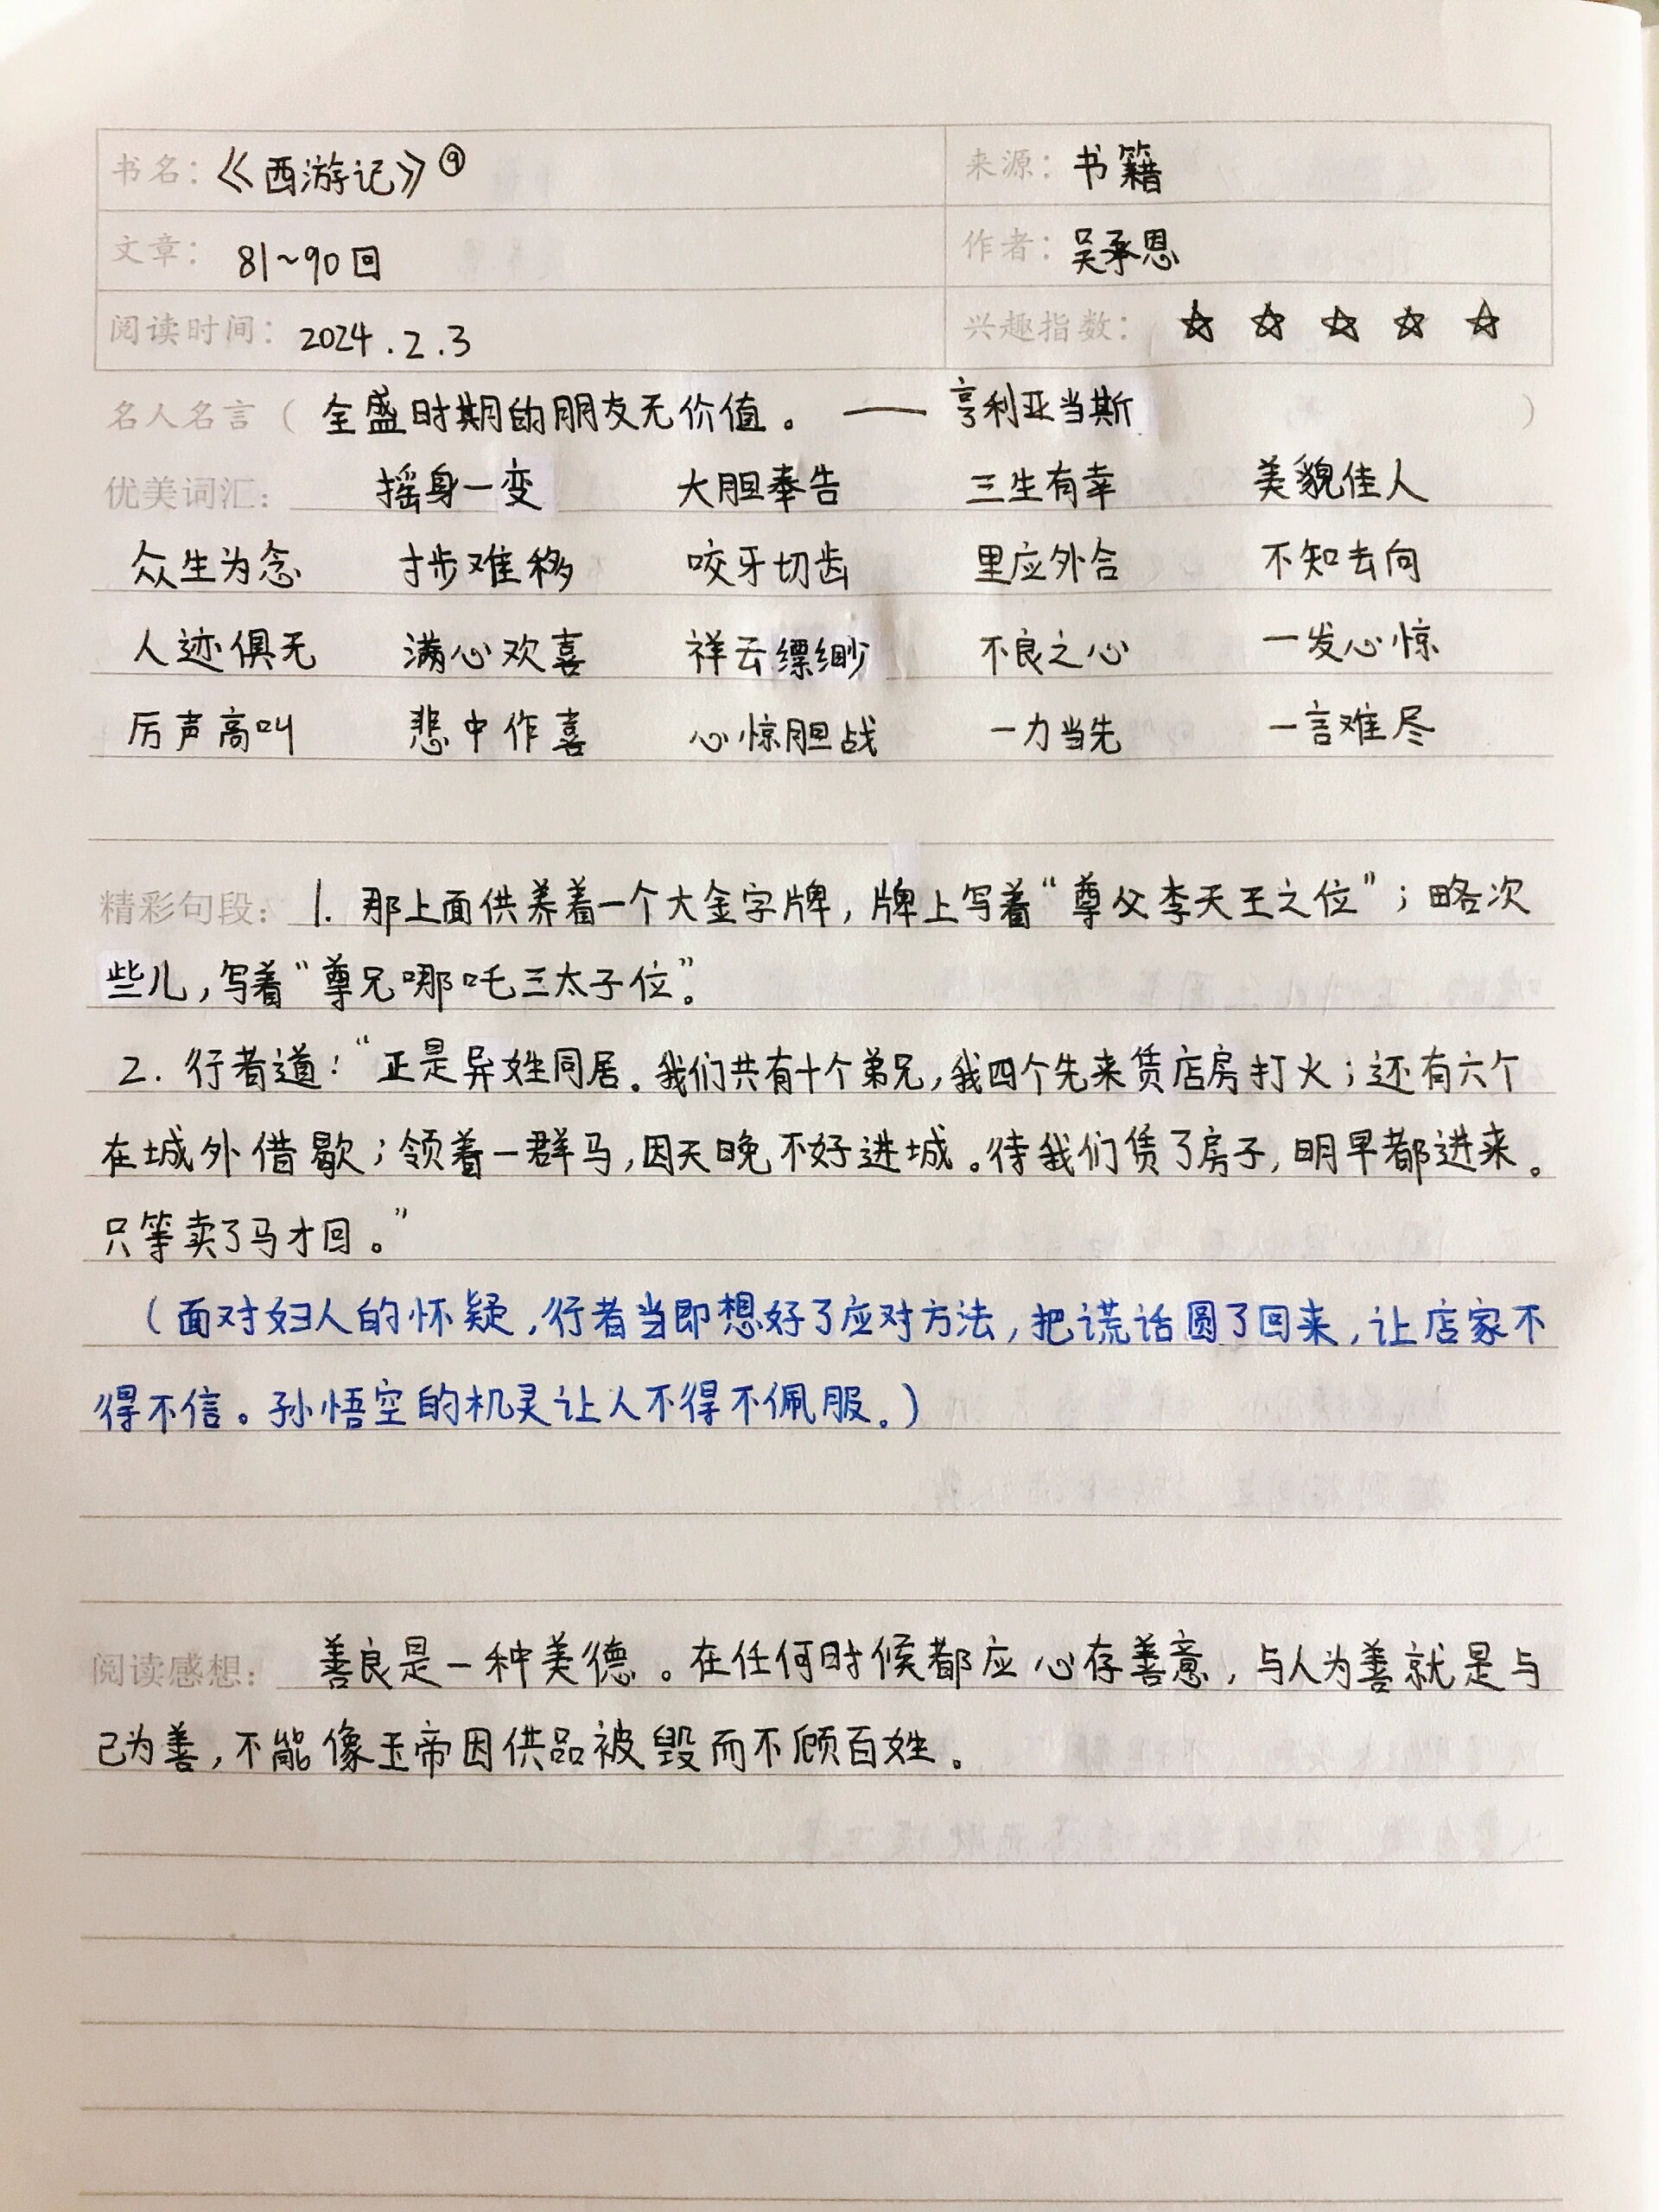 书名：《西游记》⑨ 来源：书籍
文章：81~90回 作者：吴承恩
阅读时间：2024.2.3 兴趣指数：☆ ☆ ☆ ☆ ☆
名人名言（全盛时期的朋友无价值。——亨利亚当斯）
优美词汇： 摇身一变 大胆奉告 三生有幸 美貌佳人
众生为念 寸步难移 咬牙切齿 里应外合 不知去向
人迹俱无 满心欢喜 祥云缥缈 不良之心 一发心惊
厉声高叫 悲中作喜 心惊胆战 一力当先 一言难尽
精彩句段： 1. 那上面供养着一个大金字牌，牌上写着“尊父李天王之位”；略次
些儿，写着“尊兄哪吒三太子位”。
2. 行者道：“正是异姓同居。我们共有十个弟兄，我四个先来赁店房打火；还有六个
在城外借歇；领着一群马，因天晚不好进城。待我们赁了房子，明早都进来。
只等卖了马才回。”
（面对妇人的怀疑，行者当即想好了应对方法，把谎话圆了回来，让店家不
得不信。孙悟空的机灵让人不得不佩服。）
阅读感想： 善良是一种美德。在任何时候都应心存善意，与人为善就是与
己为善，不能像玉帝因供品被毁而不顾百姓。